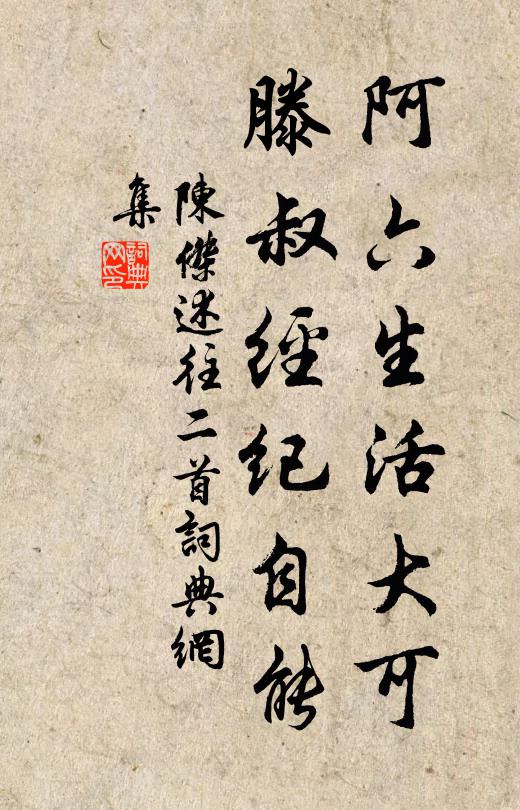 阿六生活大可
滕叔經紀自能
陳傑述往二首詞典網
集
詞典网印